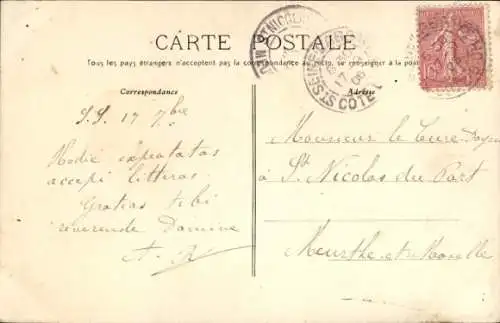 CARTE POSTALE
Tous les pays étrangers n'acceptent pas la correspondance au recto, se renseigner à la poste
Correspondance
Adresse
S.S. 17 7bre
Hodie expectatas
accepi litteras
Gratias tibi
reverende Domine
A. R
Monsieur le Curé Doyen
à St Nicolas du Port
Meurthe et Moselle
ST NICOLAS
17
06
CÔTE D